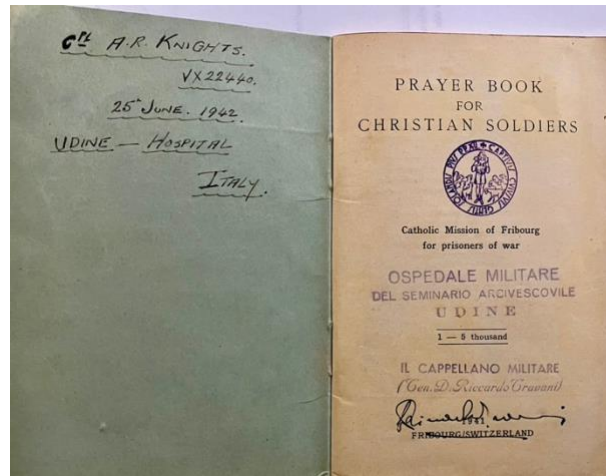 Cpl A.R. KNIGHTS.
VX22440.
25th JUNE. 1942.
UDINE — HOSPITAL
ITALY.
PRAYER BOOK
FOR
CHRISTIAN SOLDIERS
Catholic Mission of Fribourg
for prisoners of war
OSPEDALE MILITARE
DEL SEMINARIO ARCIVESCOVILE
UDINE
1 — 5 thousand
IL CAPPELLANO MILITARE
FRIBOURG/SWITZERLAND